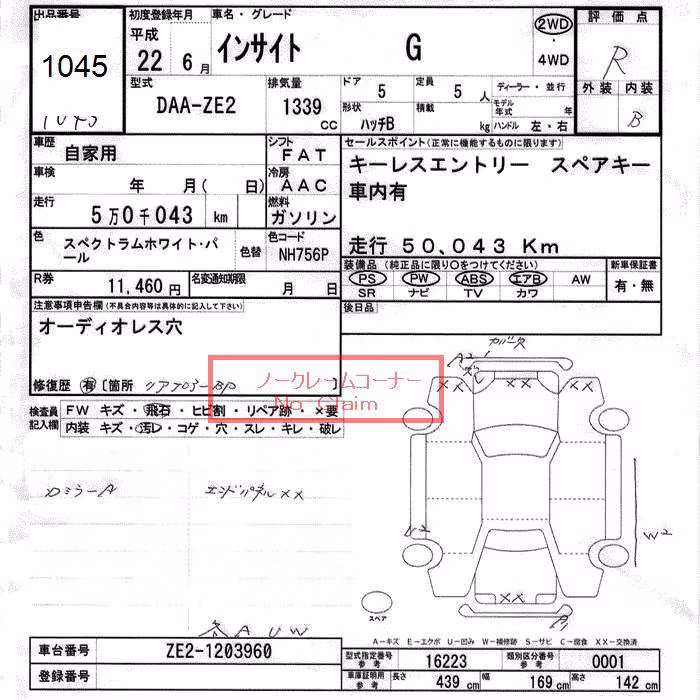 出品番号
1045
初度登録年月
平成
22 6 月
車名・グレード
インサイト G
2WD
・
4WD
評価点
R
外装 内装
B
型式
DAA-ZE2
排気量
1339
CC
ドア
5
定員
5 人
形状
ハッチB
積載
kg
ディーラー・並行
モデル年式
年
ハンドル 左・右
車歴
自家用
シフト
FAT
車検
年 月( 日)
冷房
AAC
走行
5万0千043 km
燃料
ガソリン
色
スペクトラムホワイト・パール
色替
色コード
NH756P
R券
11,460 円
名変通知期限
月 日
セールスポイント(正常に機能するものに限ります)
キーレスエントリー スペアキー
車内有
走行 50,043 Km
装備品 (純正品に限り○をつけてください)
PS PW ABS エアB AW
SR ナビ TV カワ
新車保証書
有・無
後日品
注意事項申告欄(不具合内容等は具体的に記入して下さい)
オーディオレス穴
修復歴 有 〔箇所 リアフロアーBP 〕
ノークレームコーナー
No Claim
検査員
記入欄
FW キズ・飛石・ヒビ割・リペア跡・×要
内装 キズ・汚レ・コゲ・穴・スレ・キレ・破レ
カミラーA
エンドパネルXX
A U W
A2
XX XX XX
U2
W2
XX
スペア
A-キズ E-エクボ U-凹み W-補修跡 S-サビ C-腐食 XX-交換済
車台番号
ZE2-1203960
登録番号
型式指定番号
参考
16223
類別区分番号
参考
0001
車庫証明用
参考
長さ 439 cm
幅 169 cm
高さ 142 cm